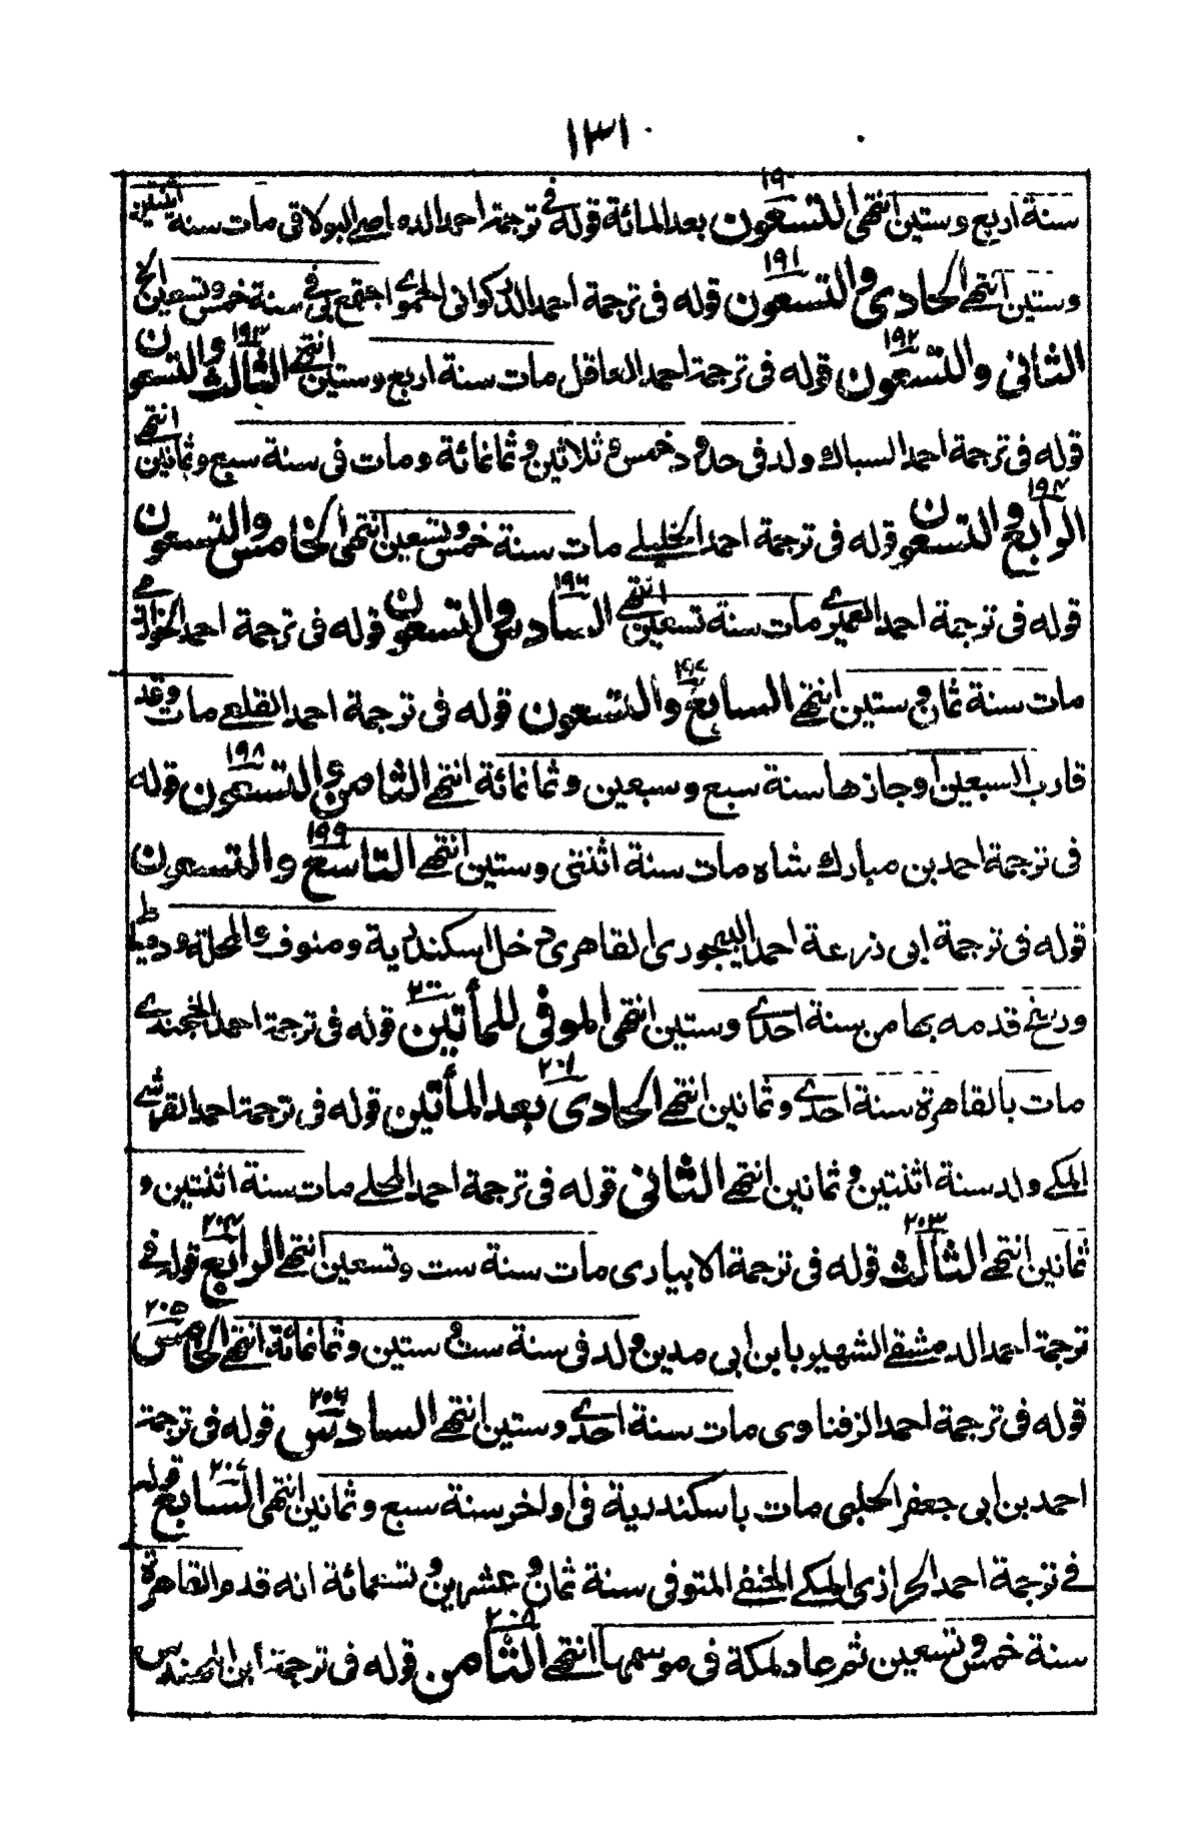 ١٣١
١٩٠
سنة اربع وستين انتهى التسعون بعد المائة قوله في ترجمة احمد الده باصر البولاقي مات سنة اثنتين
١٩١
وستين انتهى الحادي والتسعون قوله فى ترجمة احمد الذكواني الحموي اجتمع بي في سنة خمس وتسعين الخ
١٩٢ ١٩٣
الثاني والتسعون قوله فى ترجمة احمد العاقل مات سنة اربع وستين انتهى الثالث والتسعون
قوله فى ترجمة احمد السباك ولد فى حدود خمس و ثلاثين و ثمانمائة ومات فى سنة سبع وثمانين انتهى
١٩٤
الرابع والتسعون قوله فى ترجمة احمد الخليلي مات سنة خمس وتسعين انتهى الخامس والتسعون
١٩٦
قوله فى ترجمة احمد العميري مات سنة تسعين انتهى السادس والتسعون قوله فى ترجمة احمد
مات سنة ثمان و ستين انتهى السابع والتسعون قوله فى ترجمة احمد القلعي مات وقد
١٩٨
قارب السبعين او جازها سنة سبع وسبعين وثمانمائة انتهى الثامن والتسعون قوله
١٩٩
فى ترجمة احمد بن مبارك شاه مات سنة اثنتى وستين انتهى التاسع والتسعون
قوله فى ترجمة ابى ذرعة احمد البيجوري القاهري دخل اسكندرية ومنوف والمحلة ودمياط
٢٠٠
ورخ قدمه بها من سنة احدى وستين انتهى الموفى للمأتين قوله فى ترجمة احمد الخجندي
٢٠١
مات بالقاهرة سنة احدى وثمانين انتهى الحادى بعد المأتين قوله فى ترجمة احمد القرشي
المكي ولد سنة اثنتين و ثمانين انتهى الثانى قوله فى ترجمة احمد المحلي مات سنة اثنتين و
٢٠٣ ٢٠٤
ثمانين انتهى الثالث قوله فى ترجمة الابيارى مات سنة ست وتسعين انتهى الرابع قوله في
٢٠٥
ترجمة احمد الدمشقي الشهير بابن ابى مدين ولد فى سنة ست و ستين وثمانمائة انتهى الخامس
٢٠٦
قوله فى ترجمة احمد الزفتاوى مات سنة احدى وستين انتهى السادس قوله فى ترجمة
٢٠٧
احمد بن ابى جعفر الحلبى مات باسكندرية فى اواخر سنة سبع وثمانين انتهى السابع قوله
في ترجمة احمد الحرازى المكي الحنفي المتوفى سنة ثمان و عشرين و تسعمائة انه قدم القاهرة
٢٠٨
سنة خمس و تسعين ثم عاد لمكة فى موسمها انتهى الثامن قوله فى ترجمة ابن المهندس